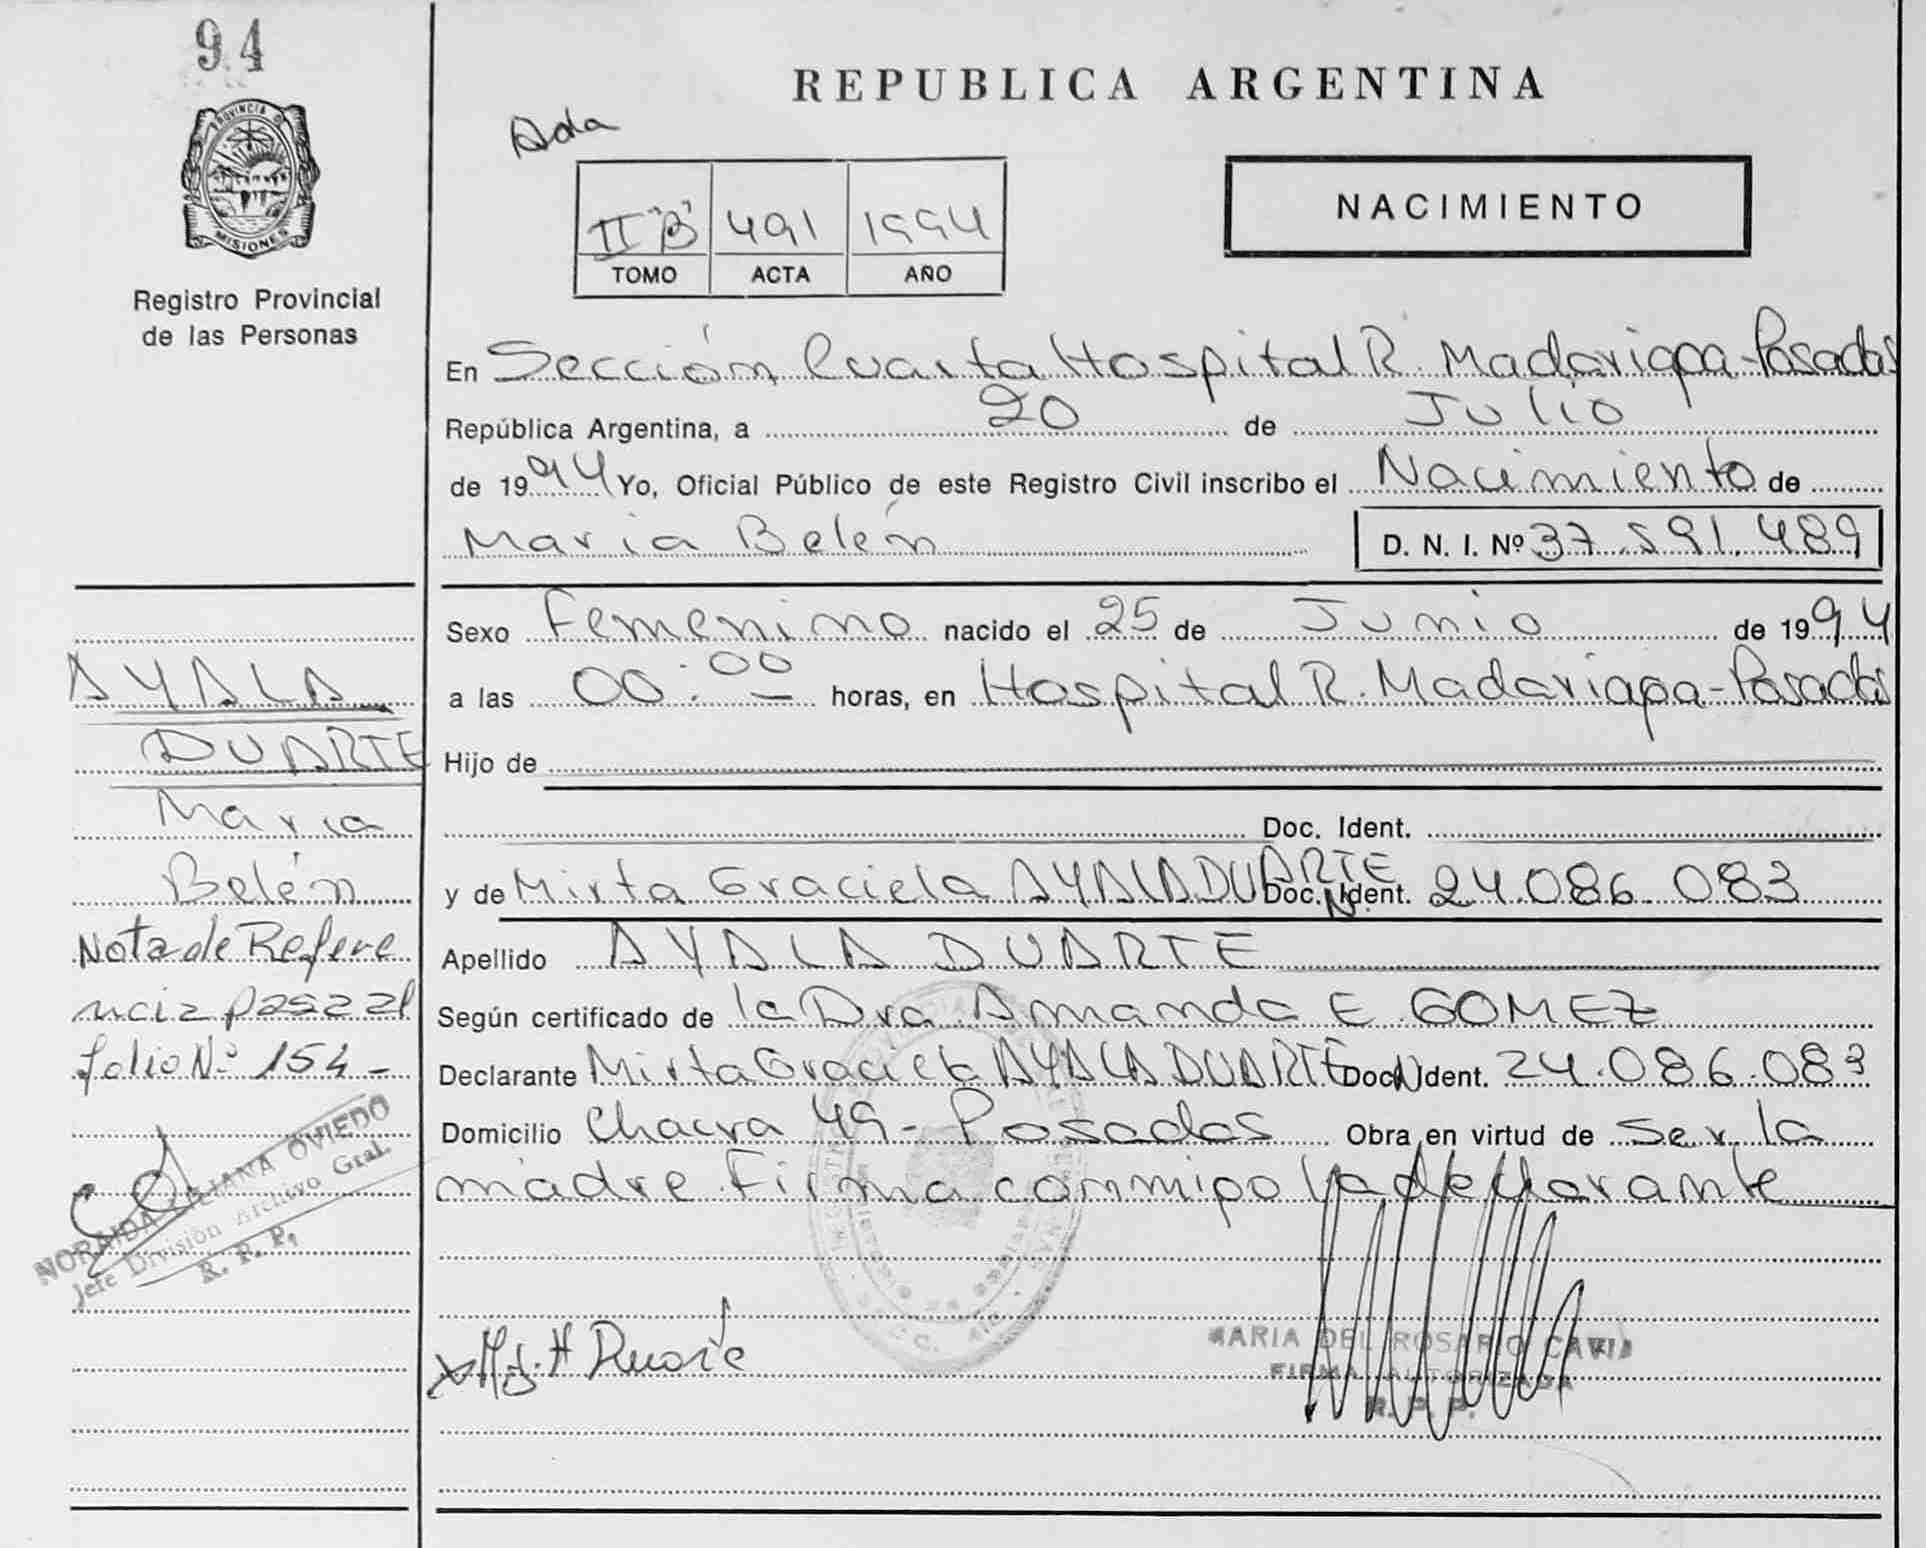 94
PROVINCIA D
MISIONES
Registro Provincial
de las Personas
REPUBLICA ARGENTINA
Ada
II "B" 491 1994
TOMO ACTA AÑO
NACIMIENTO
En Sección Cuarta Hospital R. Madariaga - Posadas
República Argentina, a 20 de Julio
de 1994 Yo, Oficial Público de este Registro Civil inscribo el Nacimiento de
Maria Belén D. N. I. Nº 37.591.489
Sexo Femenino nacido el 25 de Junio de 1994
a las 00:00 horas, en Hospital R. Madariaga - Posadas
Hijo de
Doc. Ident.
y de Mirta Graciela AYALA DUARTE Doc. Ident. 24.086.083
Apellido AYALA DUARTE
Según certificado de la Dra. Amanda E. GOMEZ
Declarante Mirta Graciela AYALA DUARTE Doc. Ident. 24.086.083
Domicilio Chacra 49 - Posadas Obra en virtud de ser la
madre. Firma conmigo la declarante
AYALA
DUARTE
Maria
Belén
Nota de Refere
ncia pasa al
folio Nº 154 -
NORAIDA LILIANA OVIEDO
Jefe División Archivo Gral.
R. P. P.
Duarte
MARIA DEL ROSARIO CAVIA
FIRMA AUTORIZADA
R. P. P.